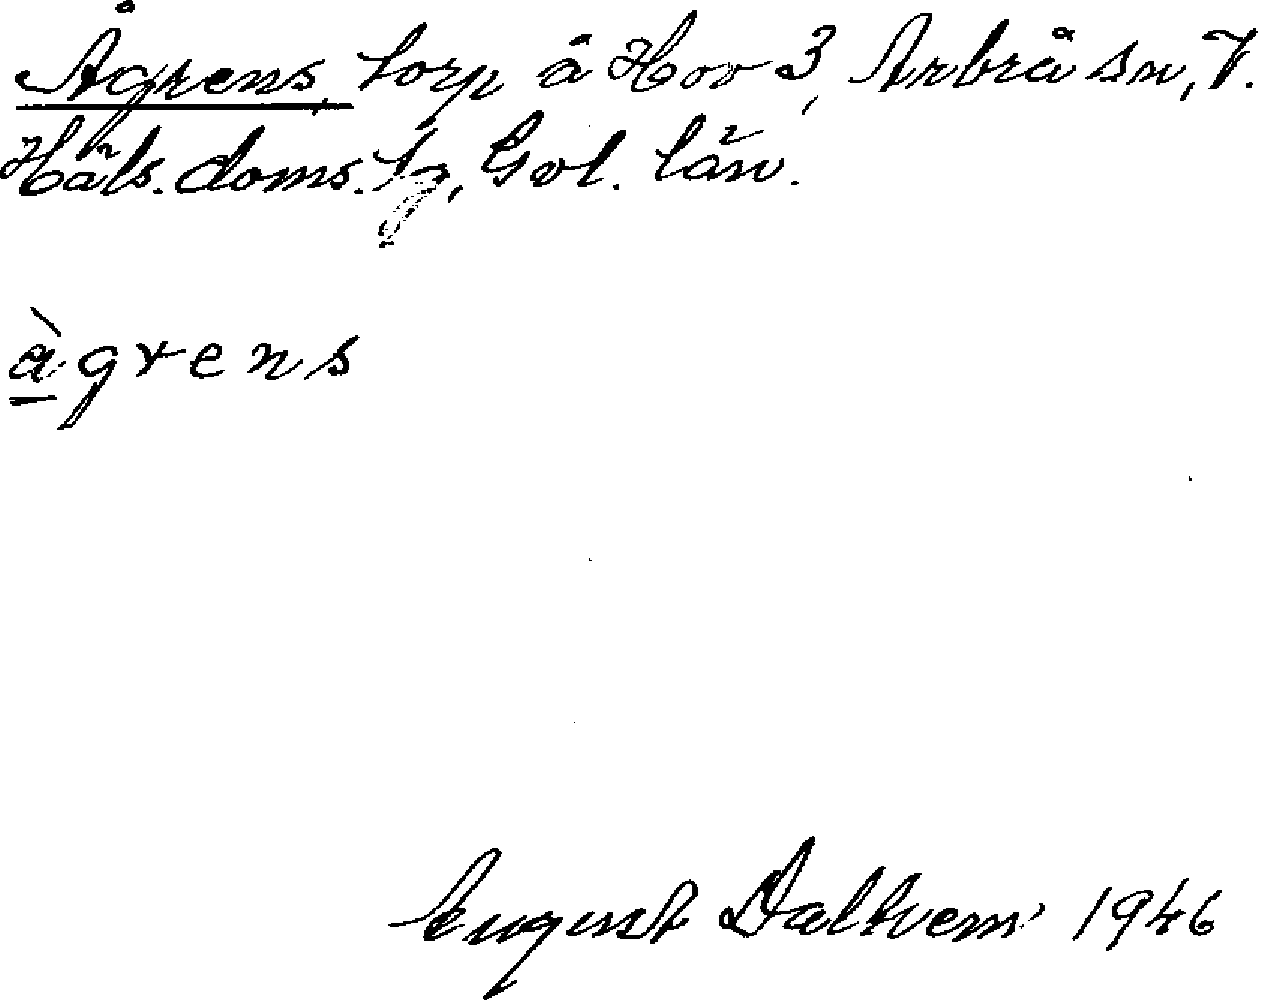 Ågrens, torp å Hov 3, Arbrå sn, V.
Häls. doms. tg, Gvl. län.
àgrens
August Daltvem 1946